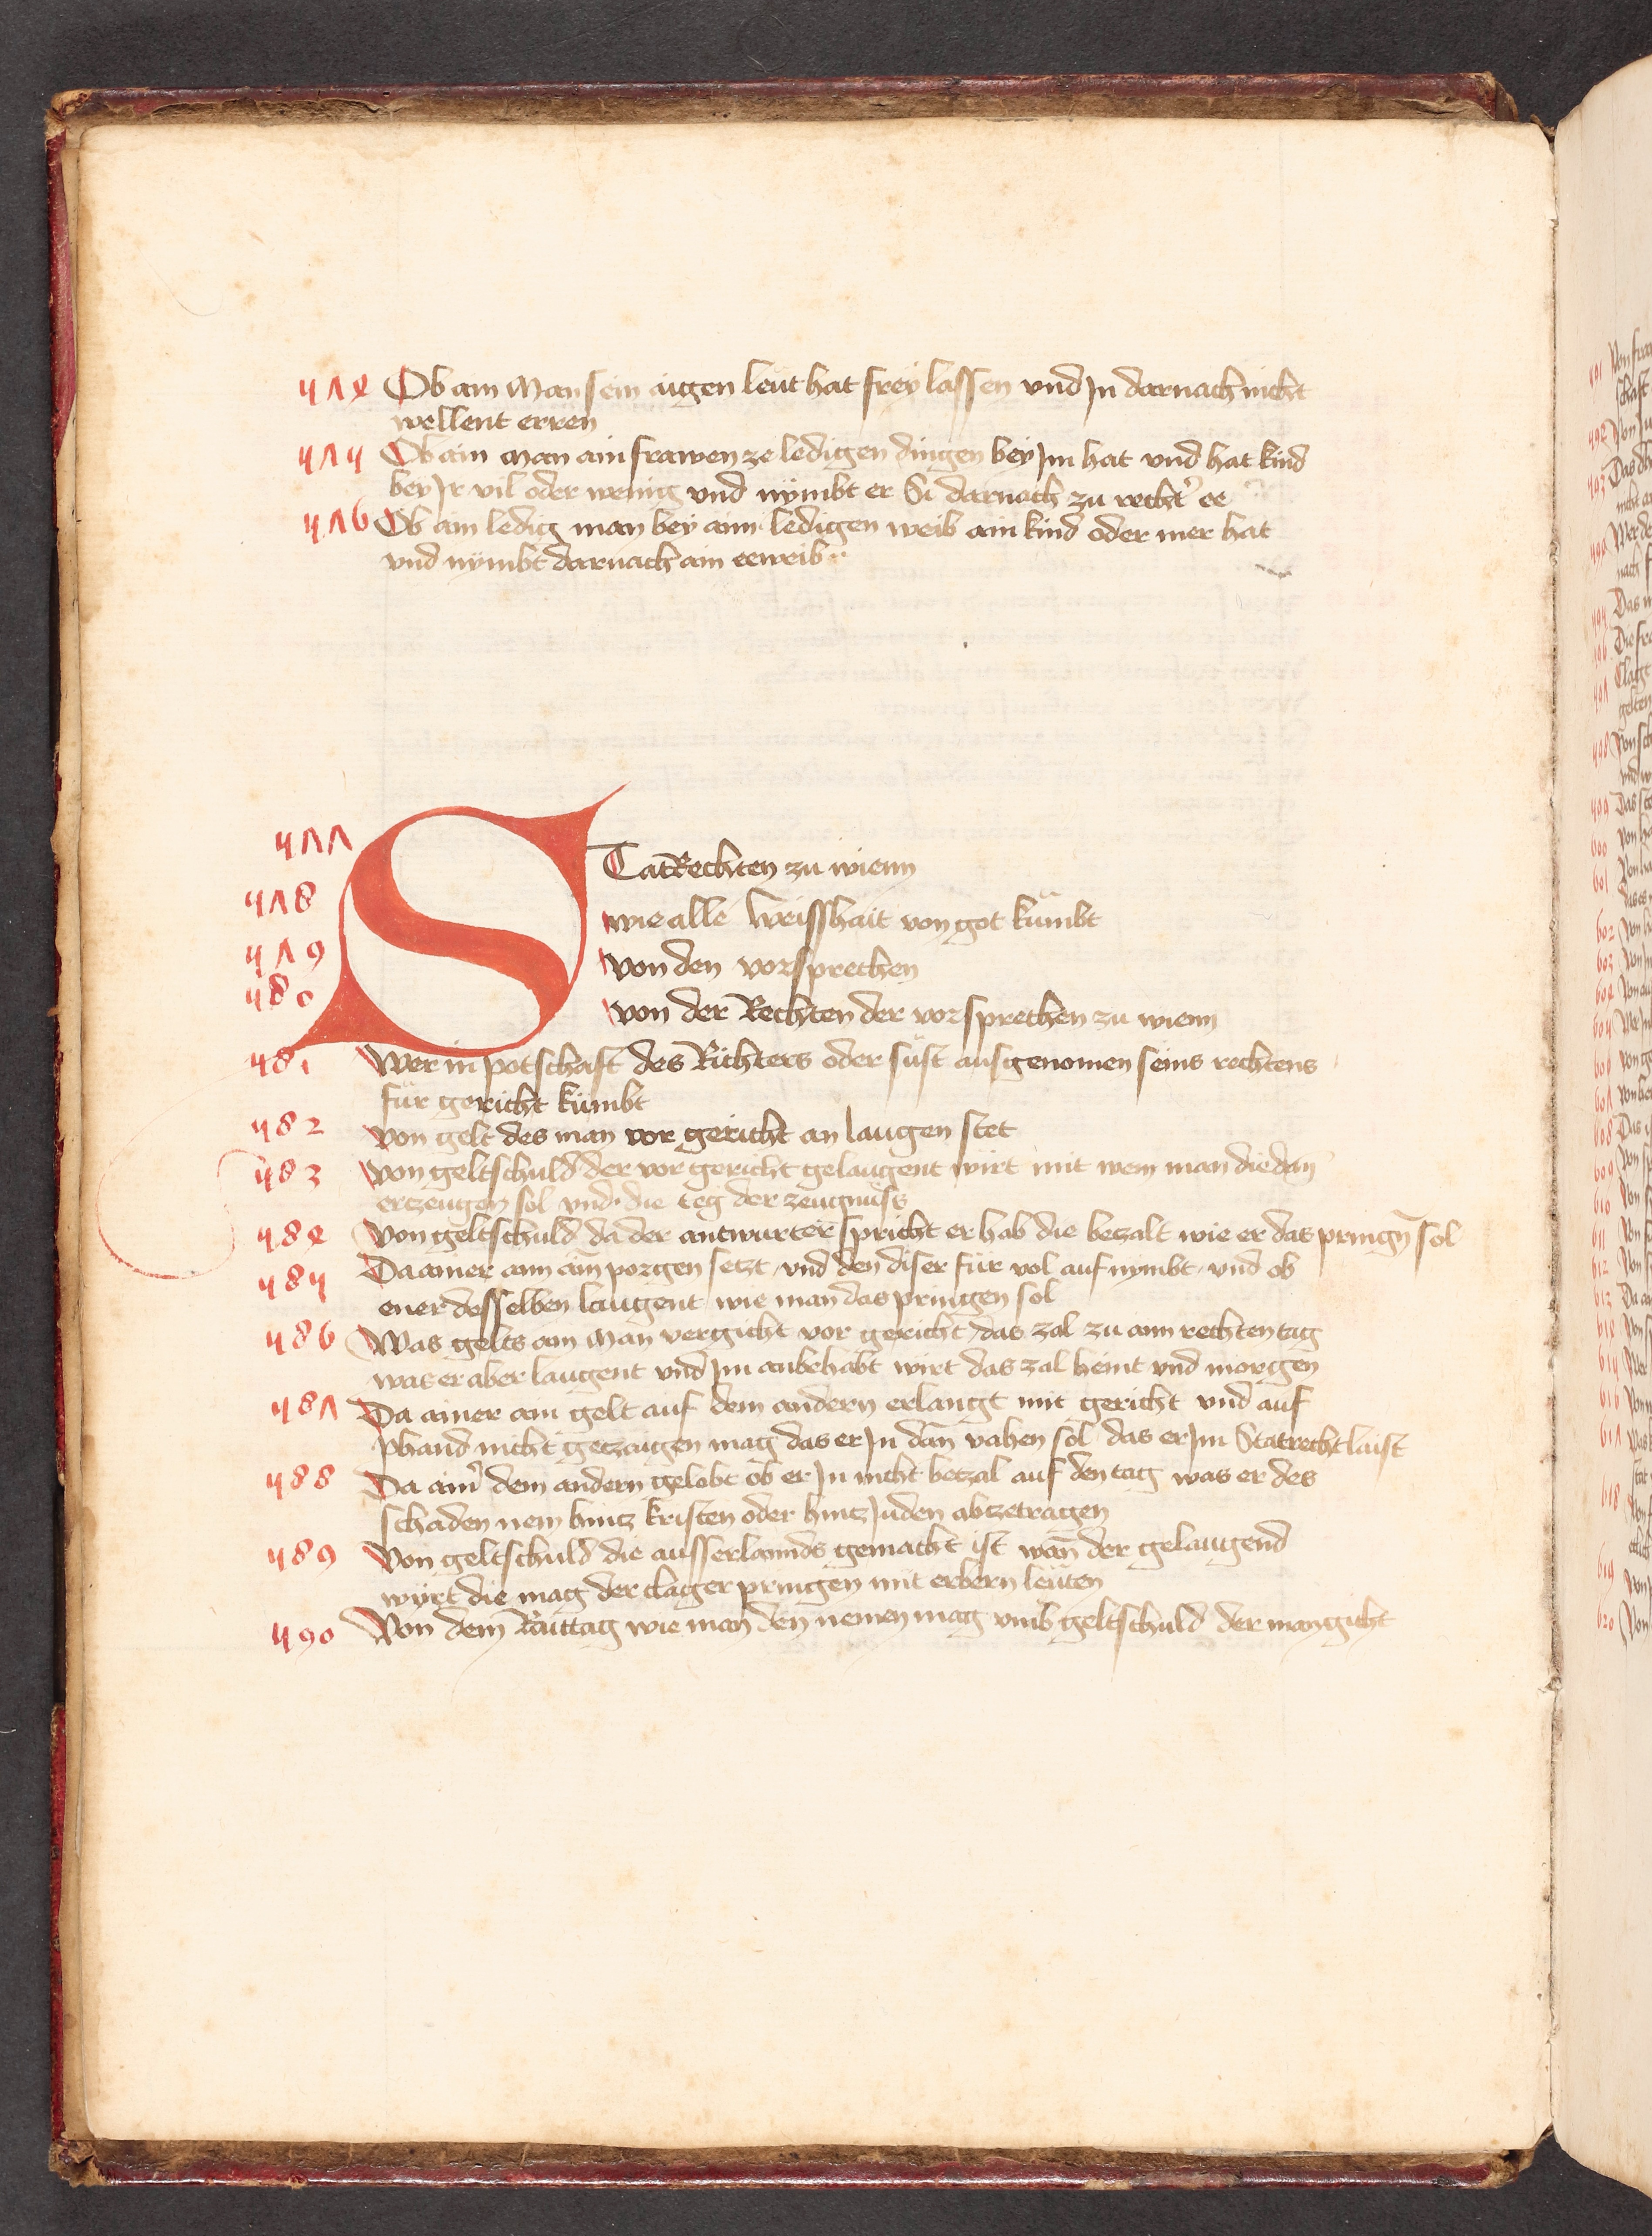 574 Ob ain Man sein aigen leut hat frey lassen vnd Jn darnach nicht
wellent erren
575 Ob ain man ain frawen ze ledigen dingen bey Jm hat vnd hat kind
bey Jr vil oder wenig vnd nymbt er Si darnach zu recht' ee
576 Ob ain ledig man bey ainn ledigen weib ain kind oder mer hat
vnd nymbt darnach ain eeweib
577 STatRechten zu wienn
578 wie alle weisshait von got kumbt
579 von den vorsprechen
580 von der Rechten der vorsprechen zu wienn
581 Wer in potschaft des Richters oder sust ausgenomen seins rechtens
für gericht kumbt
582 von gelt des man vor gericht an laugen stet
583 von geltschuld der vor gericht gelaugent wirt mit wem man die dan̄
ertzeugen sol vnd die teg der zeugnuss
584 von geltschuld da der antwurter spricht er hab die betzalt wie er das pringn̄ sol
585 Da ainer ainn ain̄ porgen setzt vnd den diser für vol auf nymbt vnd ob
ener desselben laugent wie man das pringen sol
586 Was gelts ain Man vergicht vor gericht das zal zu ainn rechten tag
was er aber laugent vnd Jm anbehabt wirt das zal heint vnd morgen
587 Da ainer ain gelt auf dem andern erlangt mit gericht vnd auf
phand nicht getzaigen mag das er Jn dan̄ vahen sol das er Jm Statrecht laist
588 Da ain' dem andern gelobt ob er Jn nicht betzal auf den tag was er des
schaden nem hintz kristen oder hintz Juden abzetragen
589 Von geltschuld die ausserlannds gemacht ist wan̄ der gelaugend
wirt die mag der clager pringen mit erbern leuten
590 Von dem Raittag wie man den nemen mag vmb geltschuld der man gicht